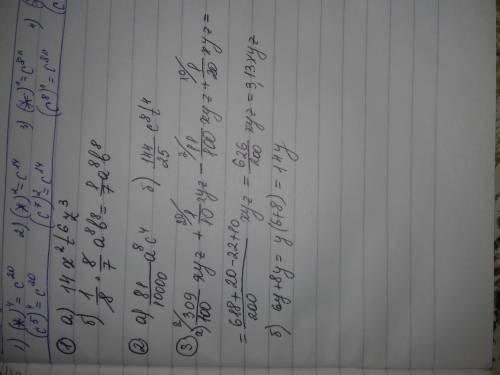 1) (*)⁴ = c²⁰ 2) (*)² = c¹⁴ 3) (*)ⁿ = c⁸ⁿ 4)
(c⁵)⁴ = c²⁰ (c⁷)² = c¹⁴ (c⁸)ⁿ = c⁸ⁿ
① а) 14x²t6y³
б) 1/8 · 8/7 a⁸b⁸ = 8/7 a⁸b⁸
② а) 81/10000 a⁸c⁴ б) 144/25 c⁸t⁴
③ а) 309/100 xyz + 1/10 xyz - 11/100 xyz + 1/20 xyz =
= (618+20-22+10)/200 xyz = 626/200 xyz = 3,13xyz
б) 6y+8y = y(6+8) = 14y